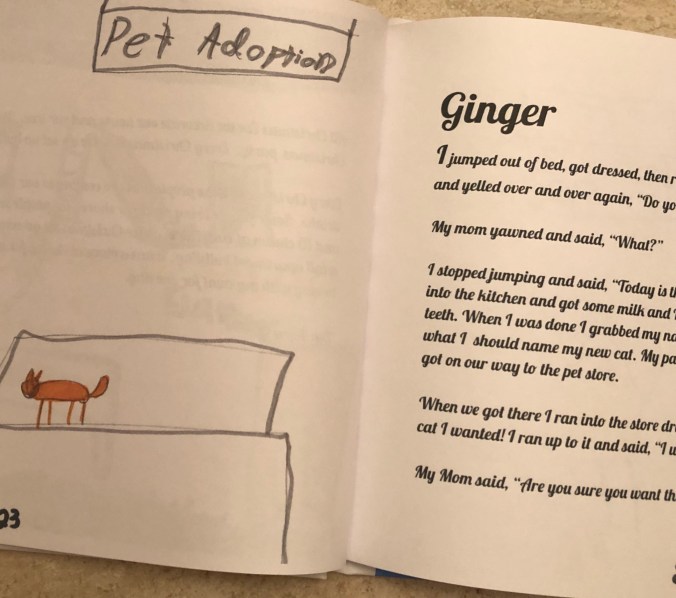 Pet Adoption
23
Ginger
I jumped out of bed, got dressed, then
and yelled over and over again, “Do
My mom yawned and said, “What?”
I stopped jumping and said, “Today is
into the kitchen and got some milk and
teeth. When I was done I grabbed my
what I should name my new cat. My
got on our way to the pet store.
When we got there I ran into the store
cat I wanted! I ran up to it and said, “I
My Mom said, “Are you sure you want